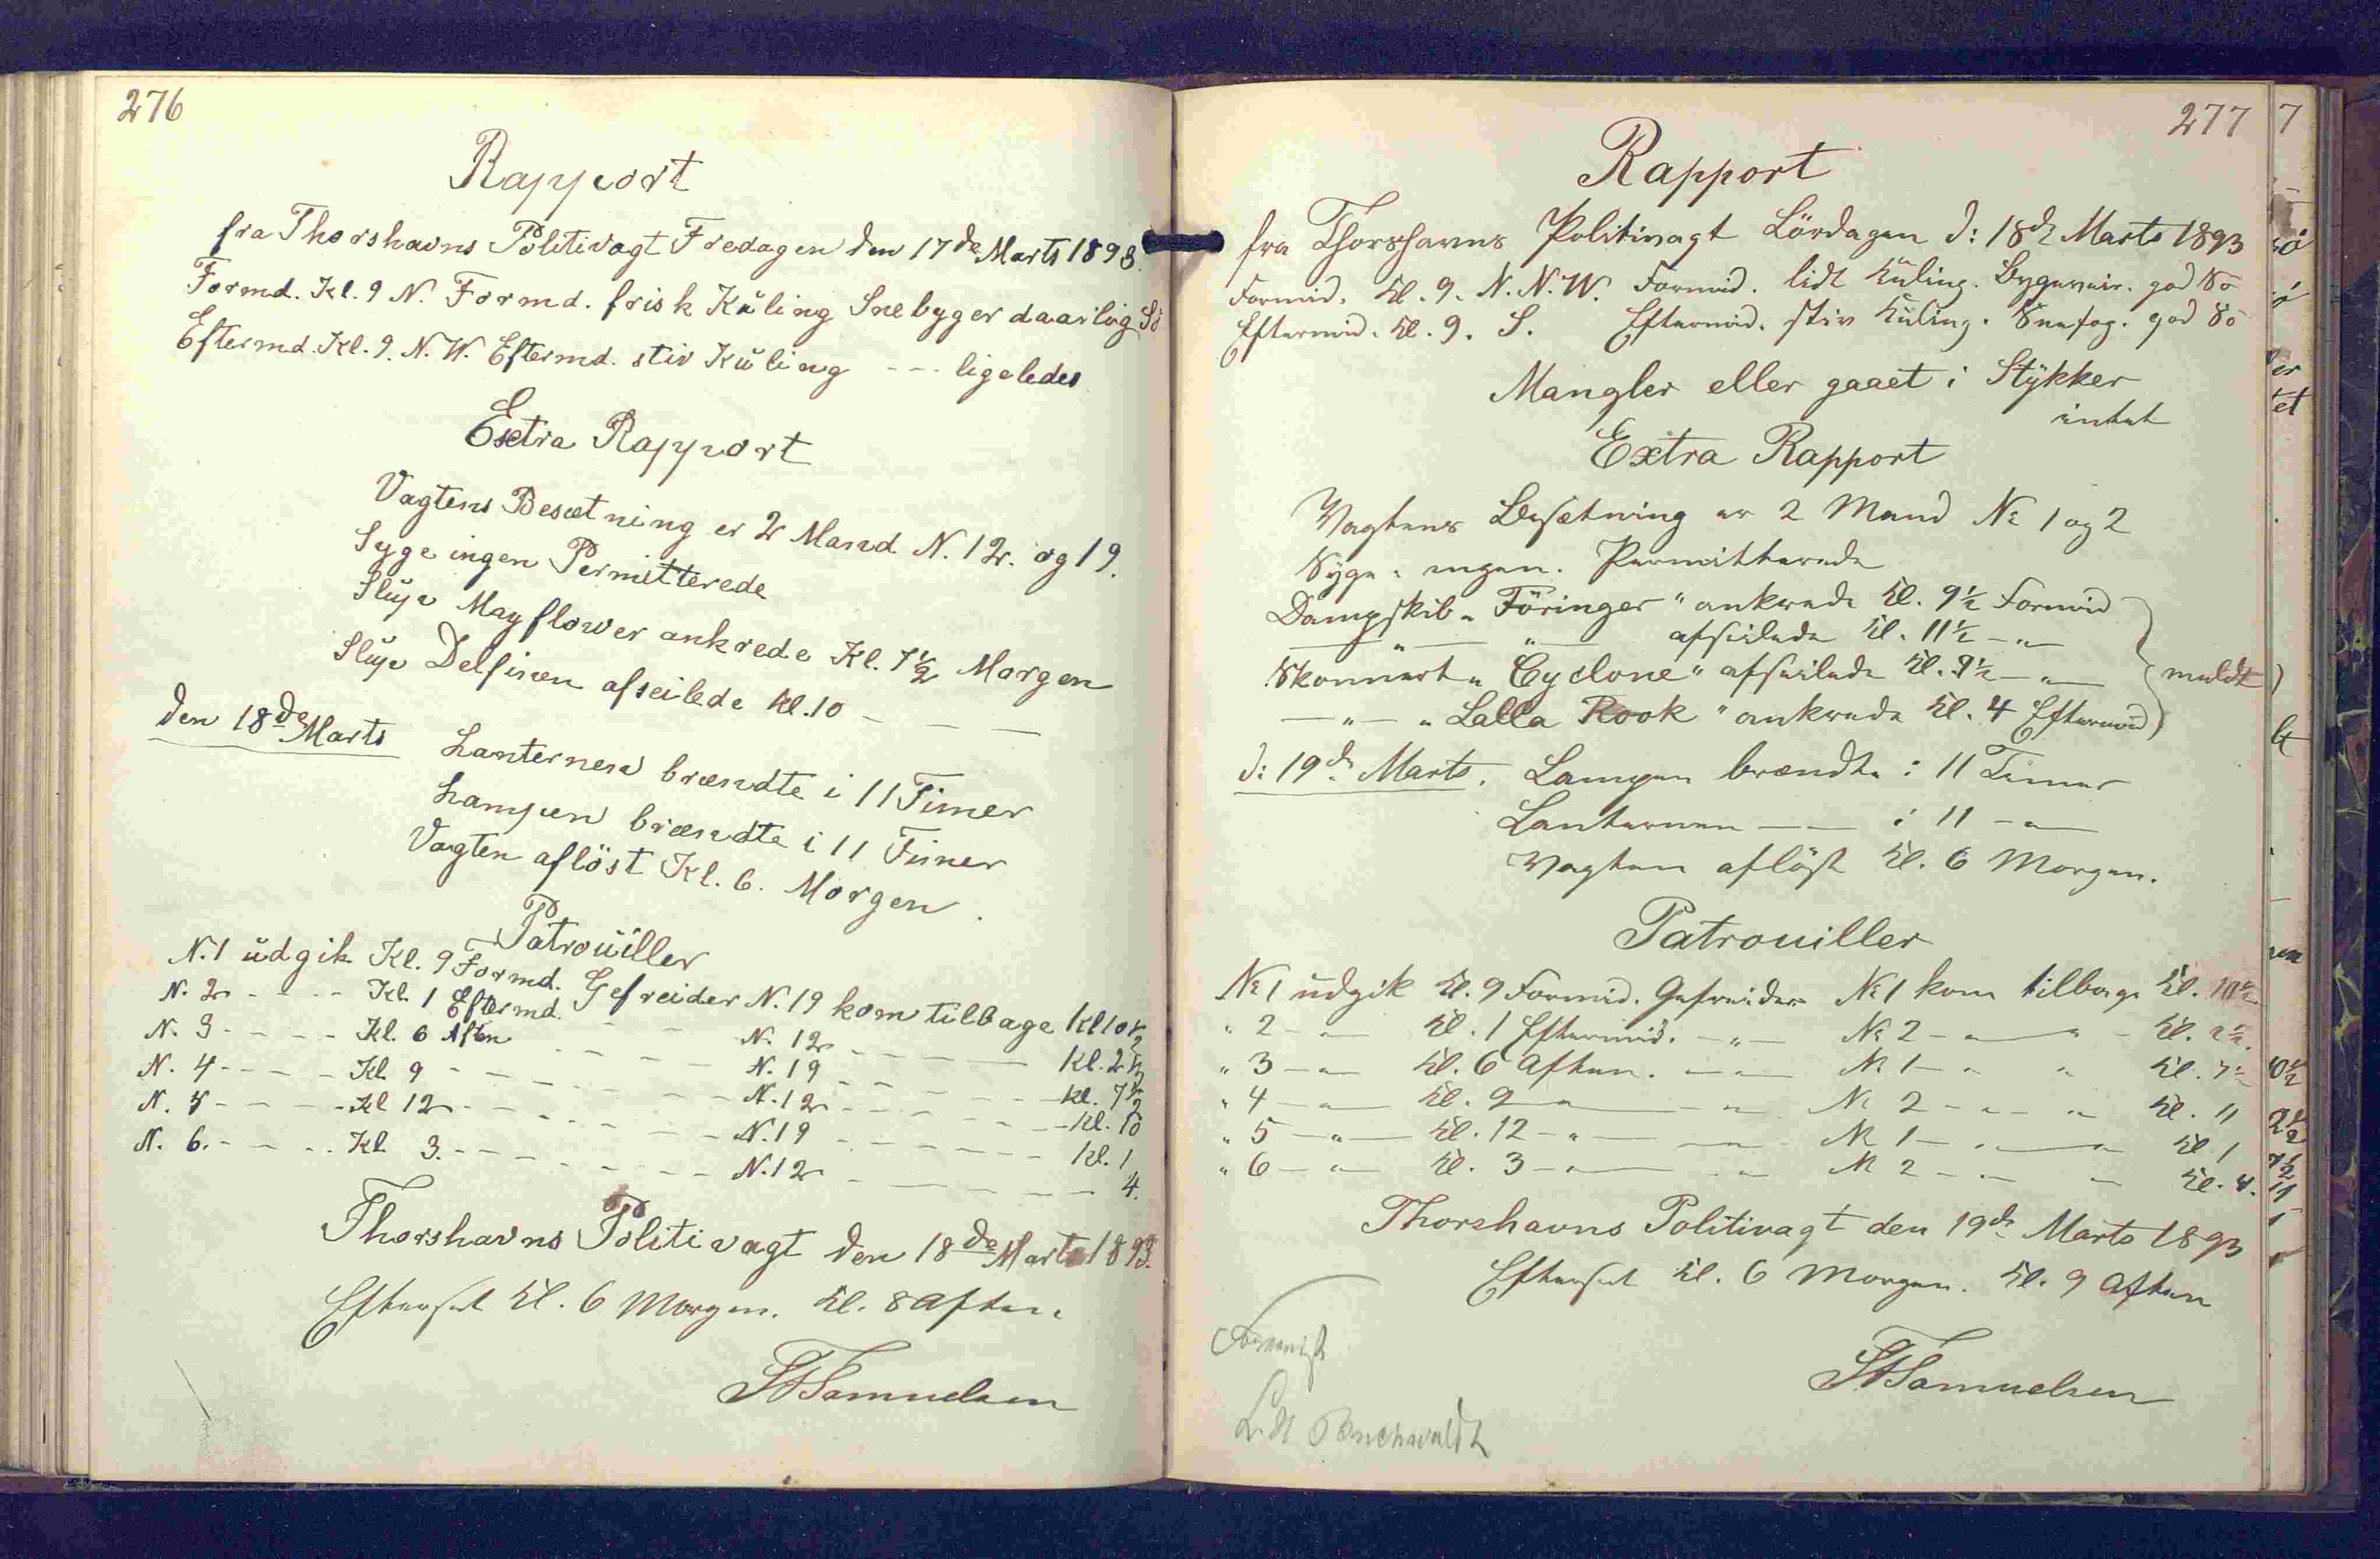 276
Rapport
fra Thorshavns Politivagt Fredagen den 17de Marts 1893.
Formd. Kl. 9 N. Formd. frisk Kuling Snebyger daarlig Sö
Eftermd. Kl. 9. N. W. Eftermd. stiv Kuling - - - ligeledes
Extra Rapport
Vagtens Besætning er 2 Mand N. 12. og 19.
Syge ingen Permitterede
Slup Mayflower ankrede Kl. 7½ Morgen
Slup Delfinen afseilede Kl. 10 — — —
den 18de Marts Lanternen brændte i 11 Timer
Lampen brændte i 11 Timer
Vagten aflöst Kl. 6. Morgen.
Patrouiller
N. 1 udgik Kl. 9 Formd. Gefreider N. 19 kom tilbage Kl 10½
N. 2 - - - - Kl. 1 Eftermd. - - N. 12 - - - - Kl. 2½
N. 3 - - - - Kl. 6 Aften - - - - N. 19 - - - - Kl. 7½
N. 4 - - - - Kl. 9 - - - - N. 12 - - - - Kl. 10
N. 5 - - - - Kl 12 - - - - N. 19 - - - - Kl. 1
N. 6. - - - - Kl 3. - - - - N. 12 - - - - 4.
Thorshavns Politivagt den 18de Marts 1893.
Efterset Kl. 6 Morgen. Kl. 8 Aften.
Samuelsen
277
Rapport
fra Thorshavns Politivagt Lördagen d: 18de Marts 1893
Formid. Kl. 9. N. N. W. Formid. lidt Kuling. Bygeveir. god Sö
Eftermid. Kl. 9. S. Eftermid. stiv Kuling. Snefog. god Sö
Mangler eller gaaet i Stykker
intet
Extra Rapport
Vagtens Besætning er 2 Mand No 1 og 2
Syge: ingen. Permitterede
Dampskib „Föringer" ankrede Kl. 9½ Formid
— „ — „ — afseilede Kl. 11½ — „ —
Skonnert „Cyclone" afseilede Kl. 9½ — „ — meldt
— „ — „Lalla Rook" ankrede Kl. 4 Eftermid
d: 19de Marts. Lampen brændte i 11 Timer
Lanternen — — i 11 — „ —
Vagten aflöst Kl. 6 Morgen.
Patrouiller
No 1 udgik Kl. 9 Formid. Gefreider No 1 kom tilbage Kl. 10½
„ 2 — „ — Kl. 1 Eftermid. — „ — No 2 — „ — „ — Kl. 2½.
„ 3 — „ — Kl. 6 Aften. — „ — No 1 — „ — „ Kl. 7½
„ 4 — „ — Kl. 9 — „ — — „ — No 2 — „ — „ Kl. 11
„ 5 — „ — Kl. 12 — „ — — „ — No 1 — „ — „ Kl. 1
„ 6 — „ — Kl. 3 — „ — — „ — No 2 — „ — „ Kl. 4.
Thorshavns Politivagt den 19de Marts 1893
Efterset Kl. 6 Morgen. Kl. 9 Aften
Samuelsen